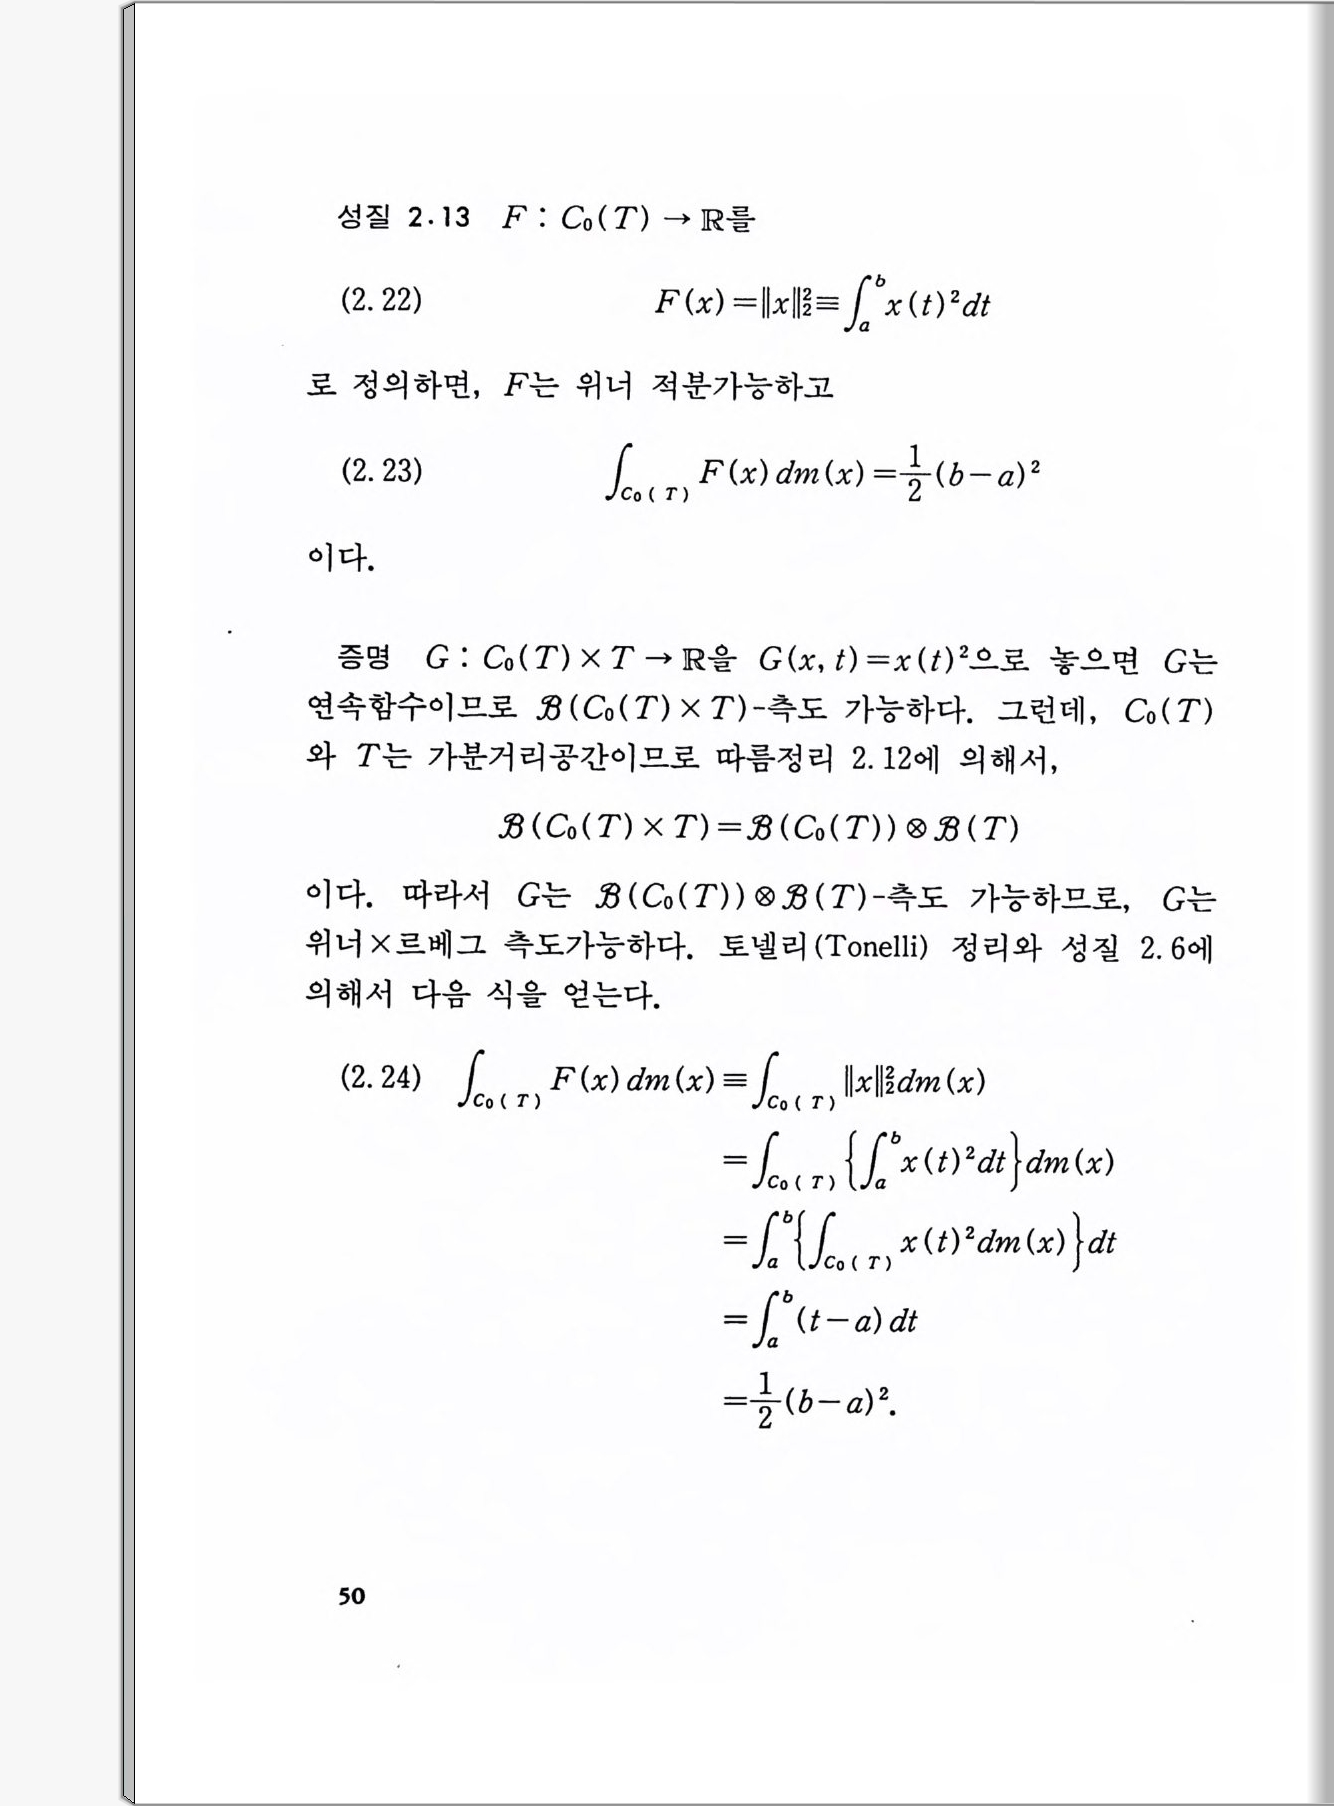 성질 2.13 F : C₀(T) → ℝ를
(2.22) F(x)=‖x‖₂²≡∫ₐᵇx(t)²dt
로 정의하면, F는 위너 적분가능하고
(2.23) ∫_{C₀(T)} F(x)dm(x)=1/2(b−a)²
이다.
증명 G : C₀(T)×T→ℝ을 G(x, t)=x(t)²으로 놓으면 G는
연속함수이므로 ℬ(C₀(T)×T)-측도 가능하다. 그런데, C₀(T)
와 T는 가분거리공간이므로 따름정리 2.12에 의해서,
ℬ(C₀(T)×T)=ℬ(C₀(T))⊗ℬ(T)
이다. 따라서 G는 ℬ(C₀(T))⊗ℬ(T)-측도 가능하므로, G는
위너×르베그 측도가능하다. 토넬리(Tonelli) 정리와 성질 2.6에
의해서 다음 식을 얻는다.
(2.24) ∫_{C₀(T)} F(x)dm(x)≡∫_{C₀(T)} ‖x‖₂²dm(x)
=∫_{C₀(T)} {∫ₐᵇx(t)²dt}dm(x)
=∫ₐᵇ{∫_{C₀(T)} x(t)²dm(x)}dt
=∫ₐᵇ(t−a)dt
=1/2(b−a)².
50